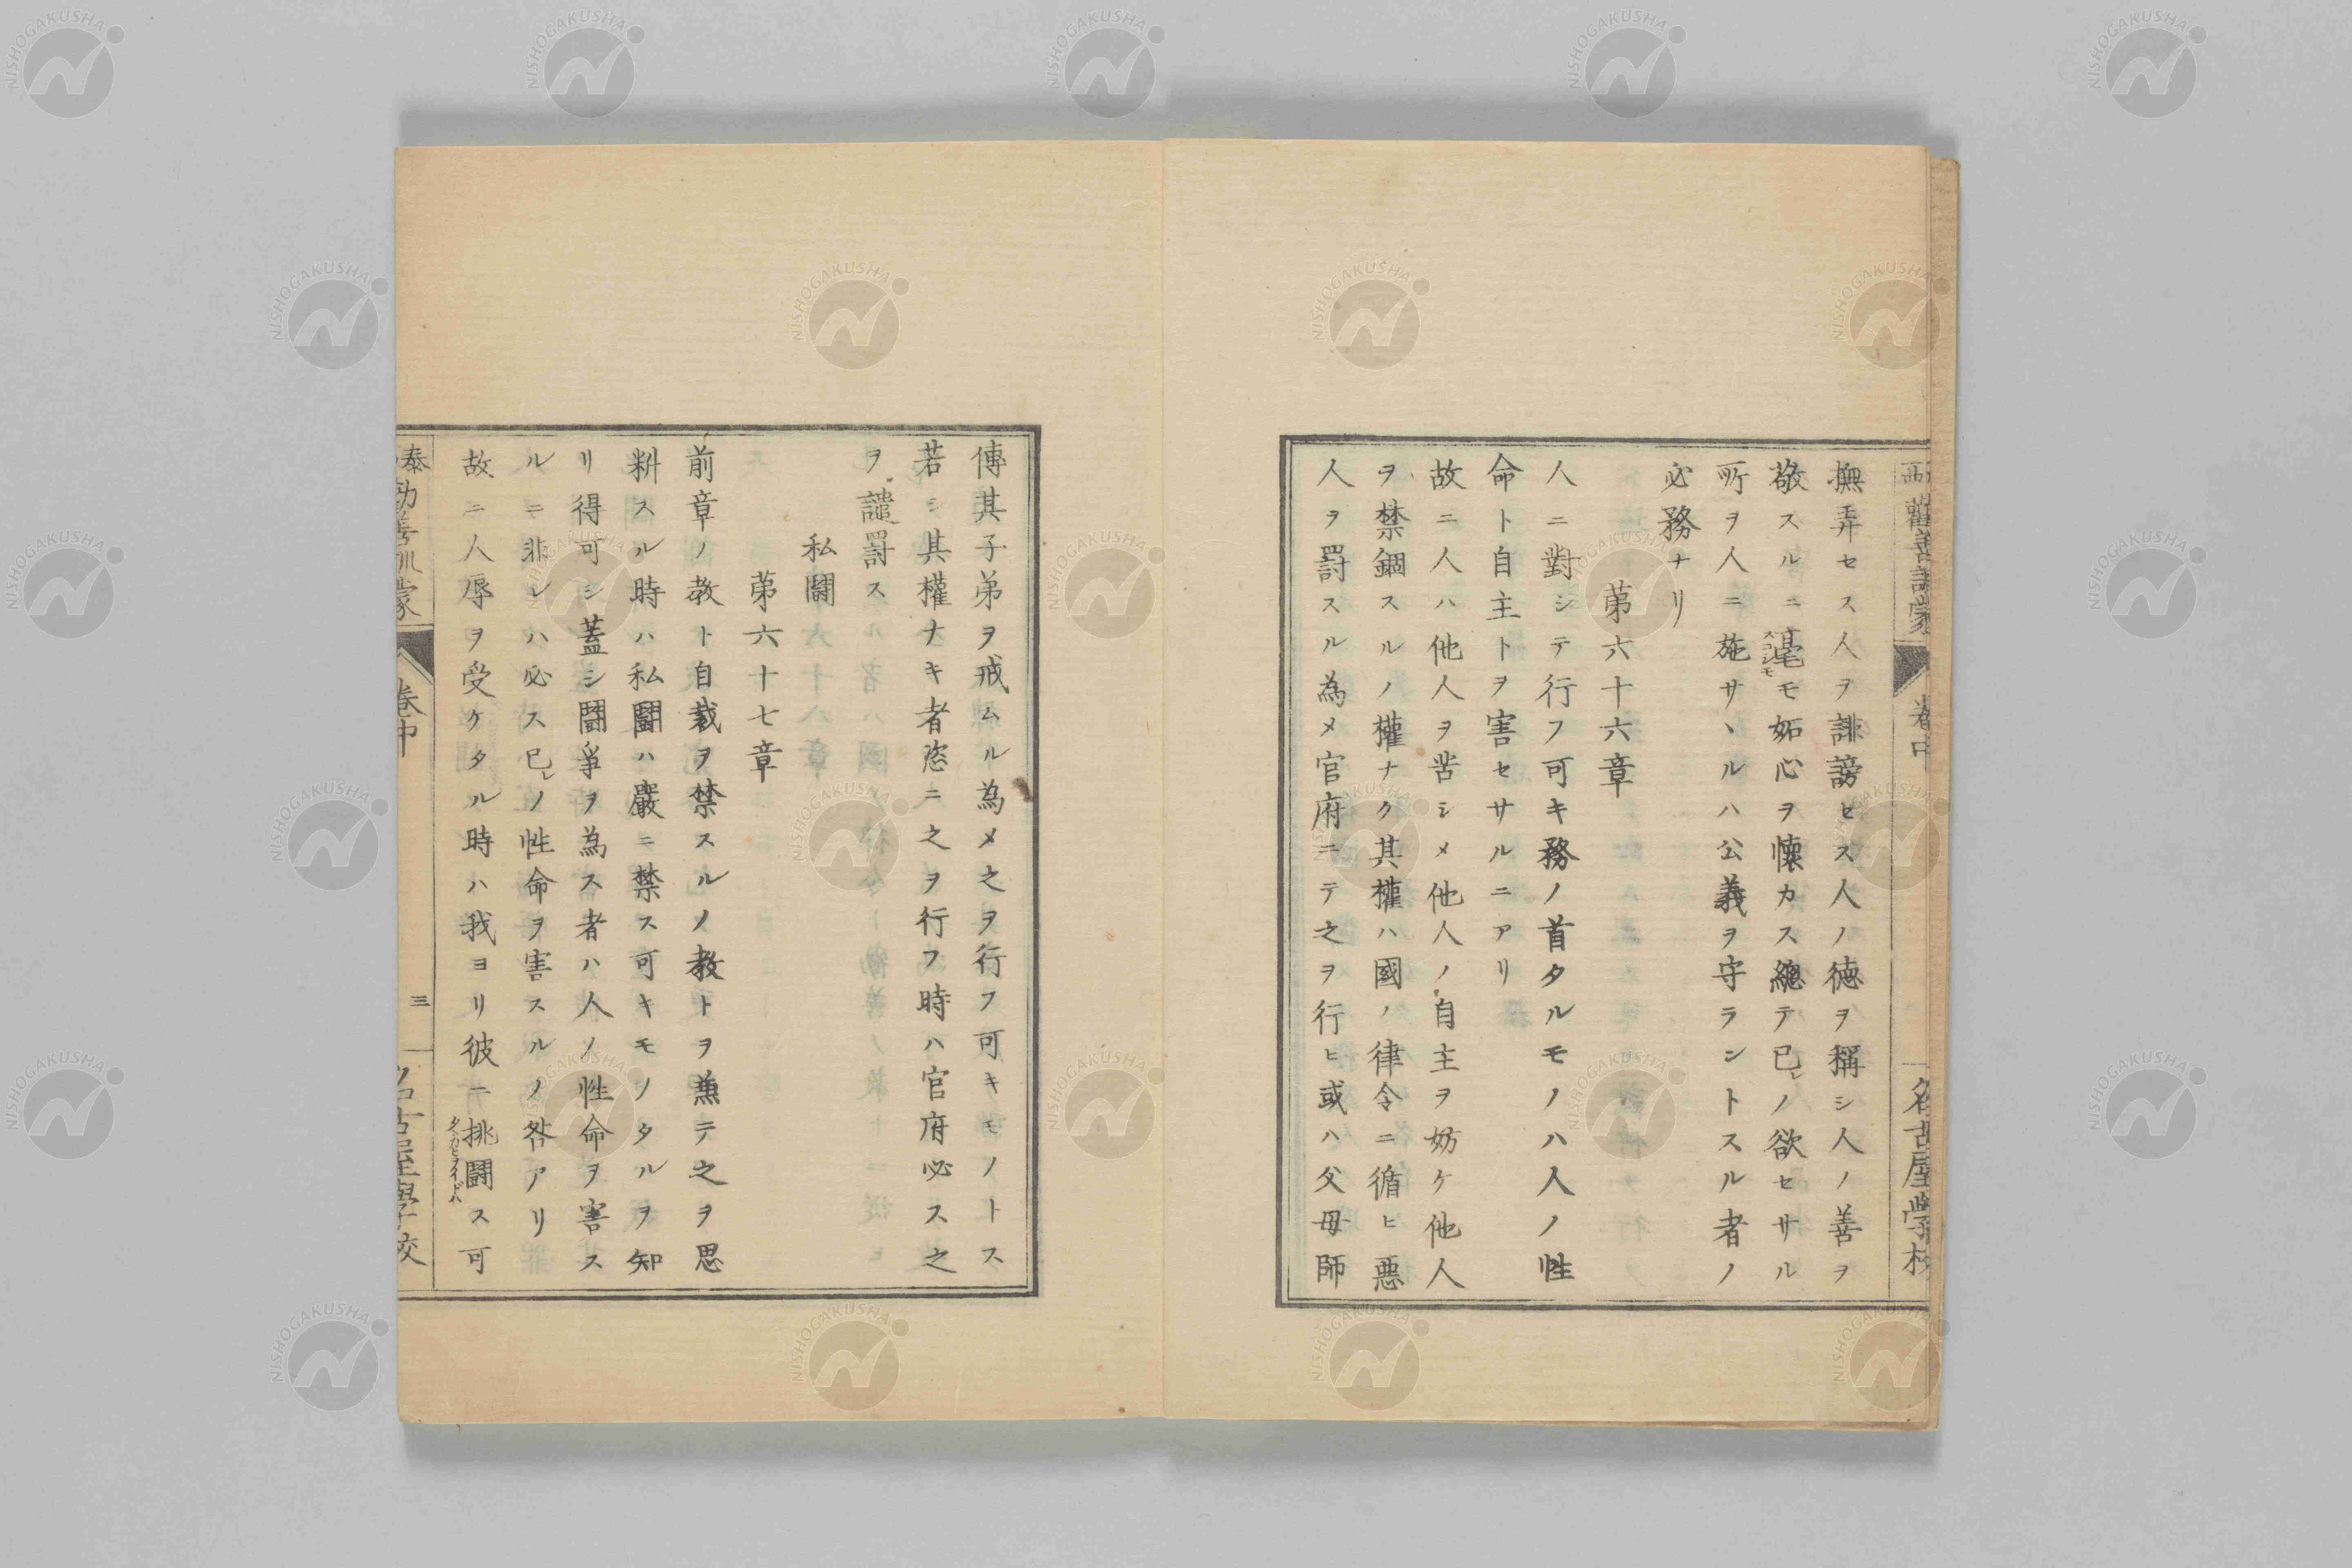 撫弄セス人ヲ誹謗セス人ノ徳ヲ稱シ人ノ善ヲ
敬スルニ毫モ妬心ヲ懐カス總テ已レノ欲セサル
スコシモ
所ヲ人ニ施サヽルハ公義ヲ守ラントスル者ノ
必務ナリ
第六十六章
人ニ對シテ行フ可キ務ノ首タルモノハ人ノ性
命ト自主トヲ害セサルニアリ
故ニ人ハ他人ヲ苦シメ他人ノ自主ヲ妨ケ他人
ヲ禁錮スルノ權ナク其權ハ國ノ律令ニ循ヒ惡
人ヲ罰スル為メ官府ニテ之ヲ行ヒ或ハ父母師
傳其子弟ヲ戒ムル為メ之ヲ行フ可キモノトス
若シ其權ナキ者恣ニ之ヲ行フ時ハ官府必ス之
ヲ譴罰ス
私鬪
第六十七章
前章ノ教ト自裁ヲ禁スルノ教トヲ兼テ之ヲ思
料スル時ハ私鬪ハ嚴ニ禁ス可キモノタルヲ知
リ得可シ蓋シ鬪爭ヲ為ス者ハ人ノ性命ヲ害ス
ルニ非レハ必ス已レノ性命ヲ害スルノ咎アリ
故ニ人辱ヲ受ケタル時ハ我ヨリ彼ニ挑鬪ス可
泰 勸善訓蒙
卷中
三
名古屋學校
西 勸善訓蒙
卷中
名古屋學校
NISHOGAKUSHA